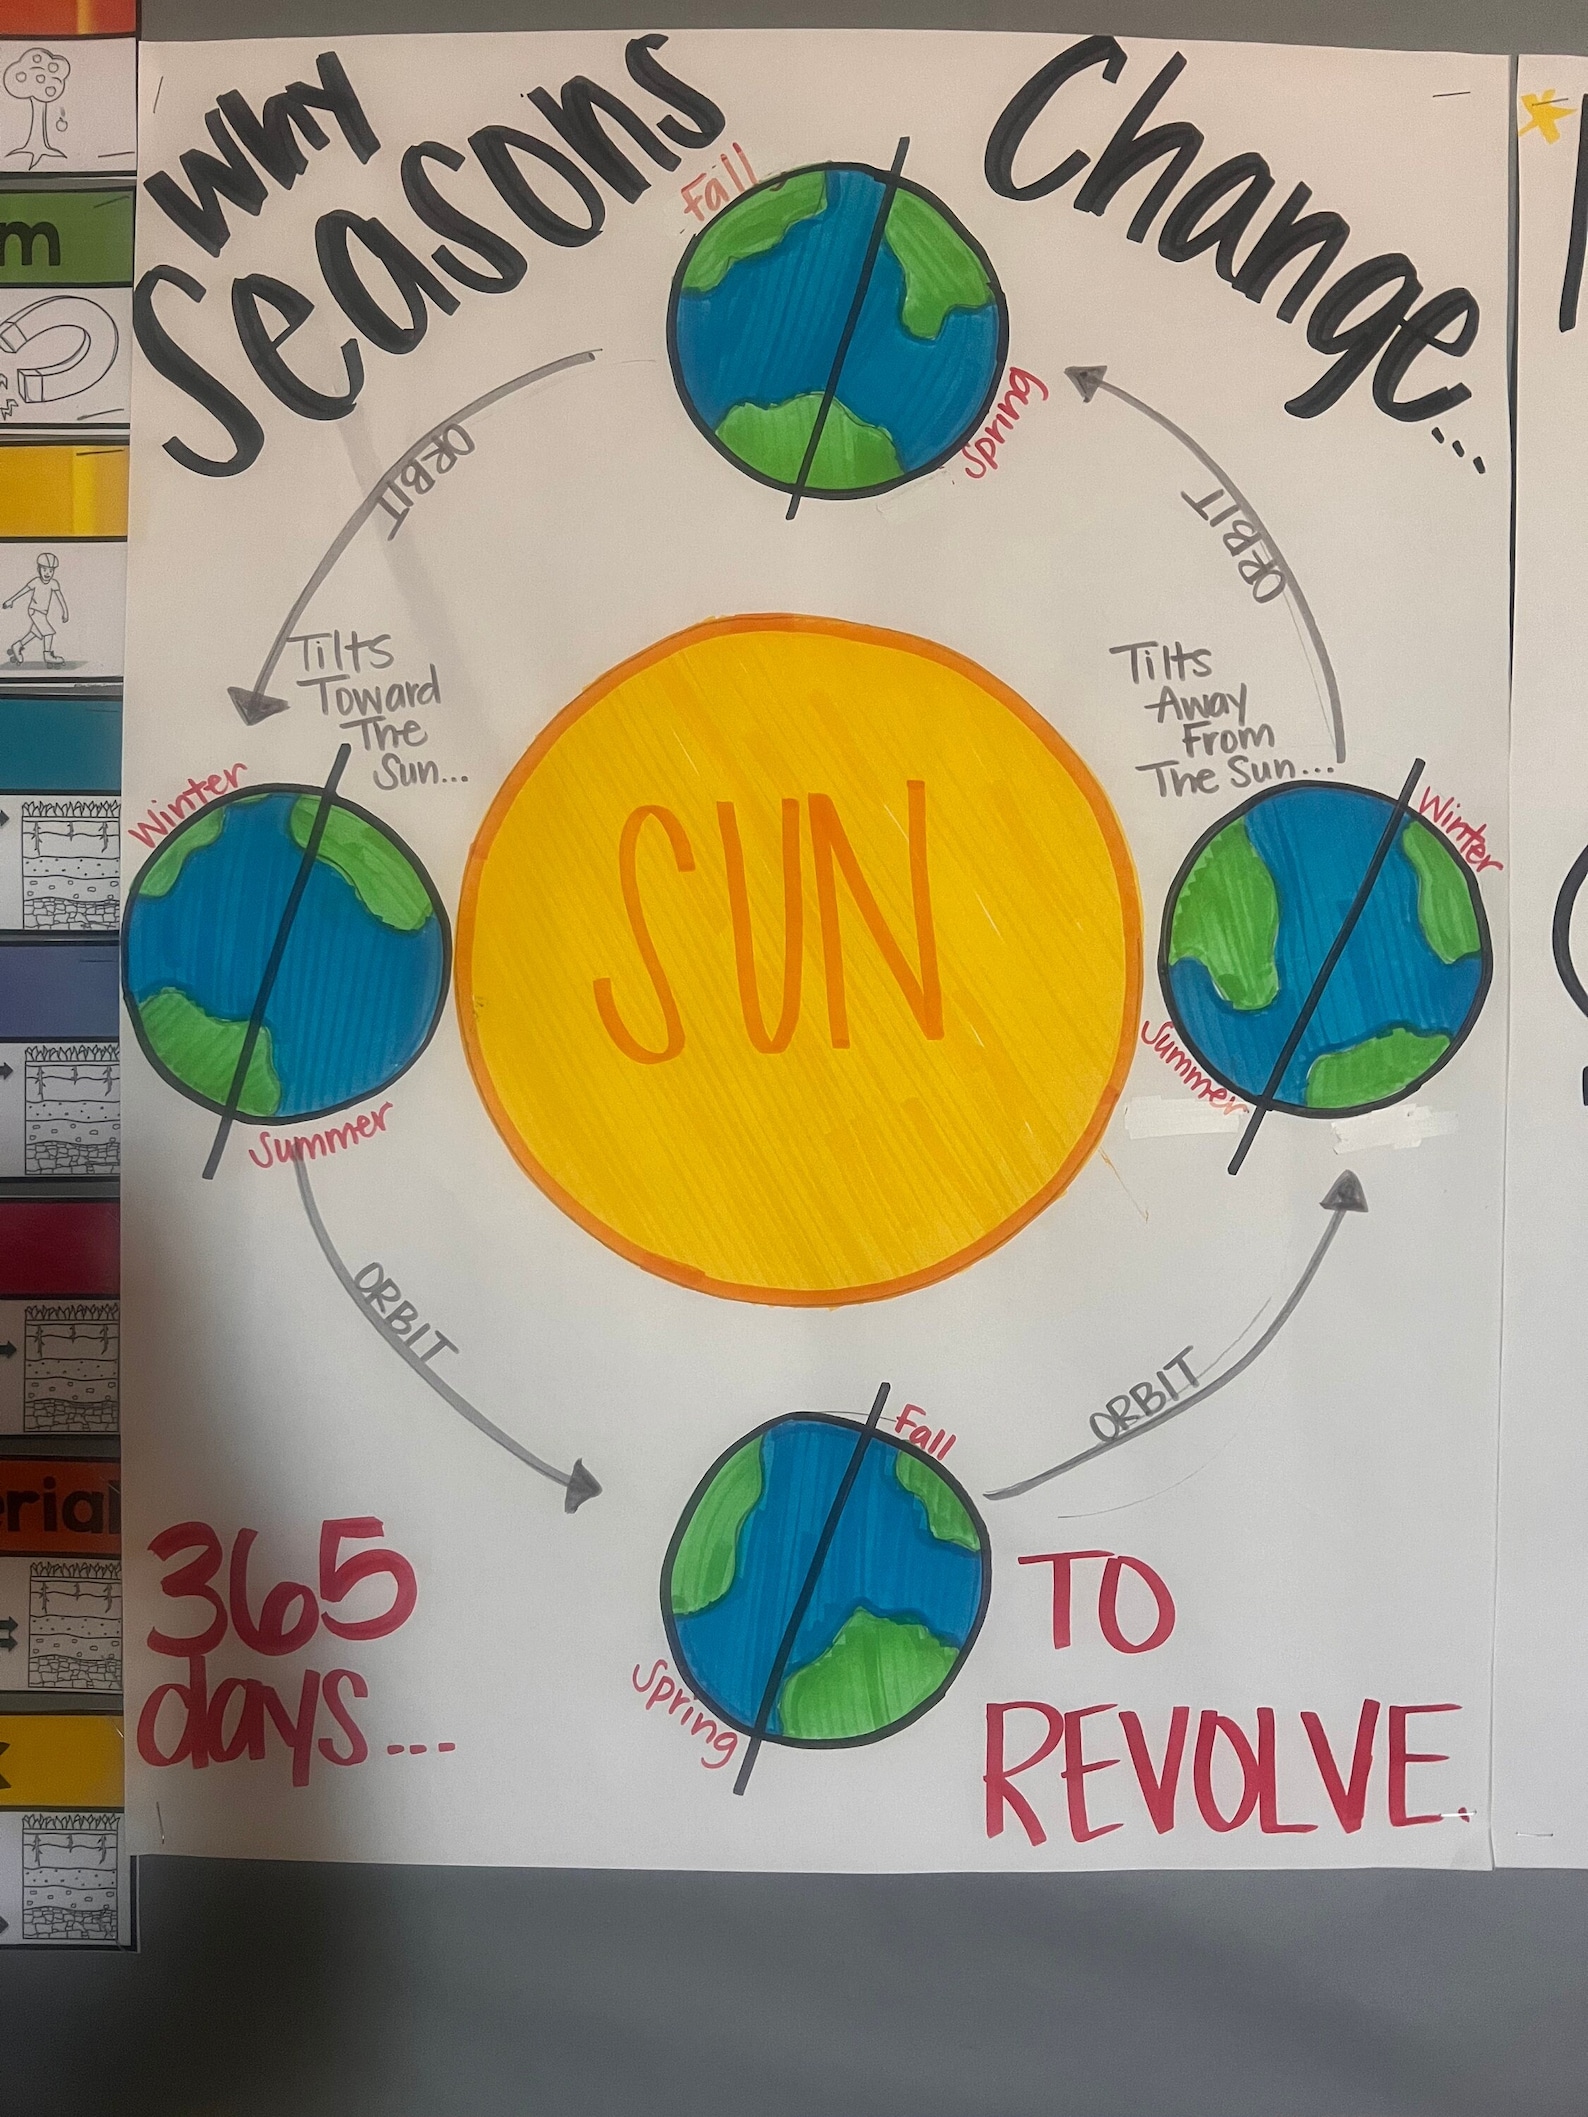 Why
Seasons
Change...
Fall
Spring
ORBIT
ORBIT
Tilts
Toward
The
Sun...
Tilts
Away
From
The Sun...
Winter
Summer
SUN
Winter
Summer
ORBIT
ORBIT
Fall
Spring
365
days...
TO
REVOLVE.
m
erial